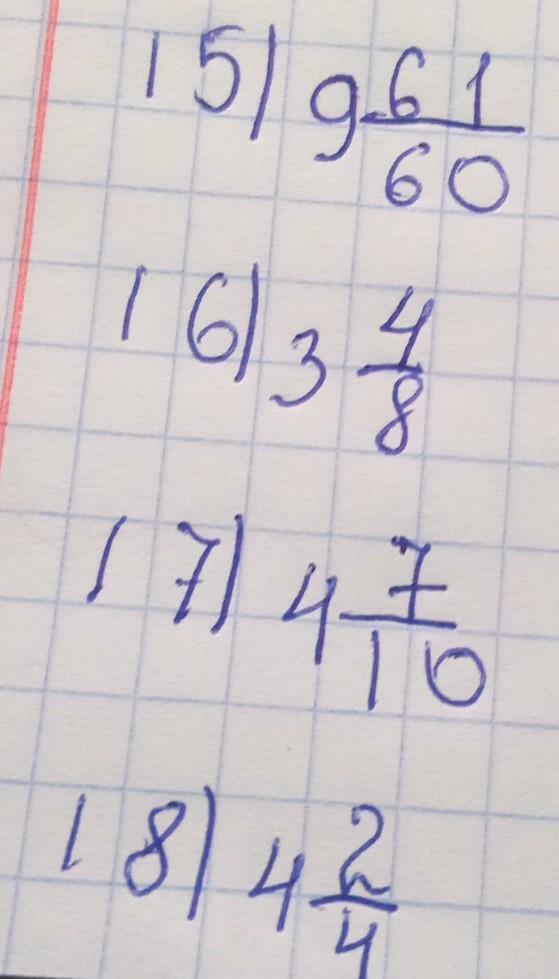 15) 9 61/60
16) 3 4/8
17) 4 7/10
18) 4 2/4